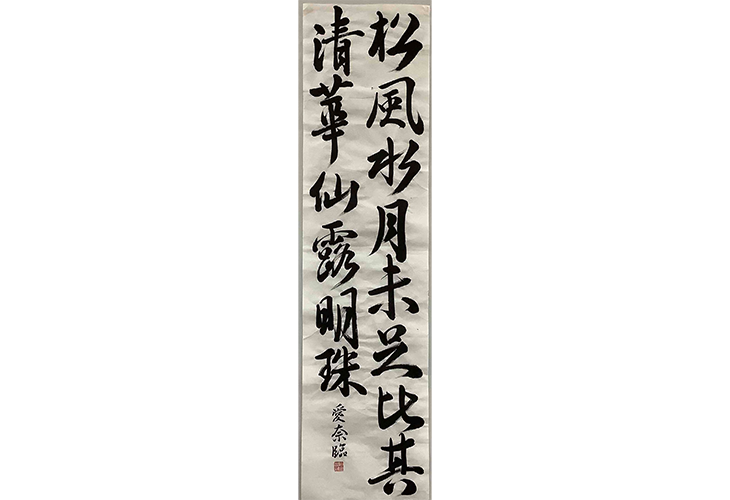 松風水月未足比其
清華仙露明珠
愛奈臨